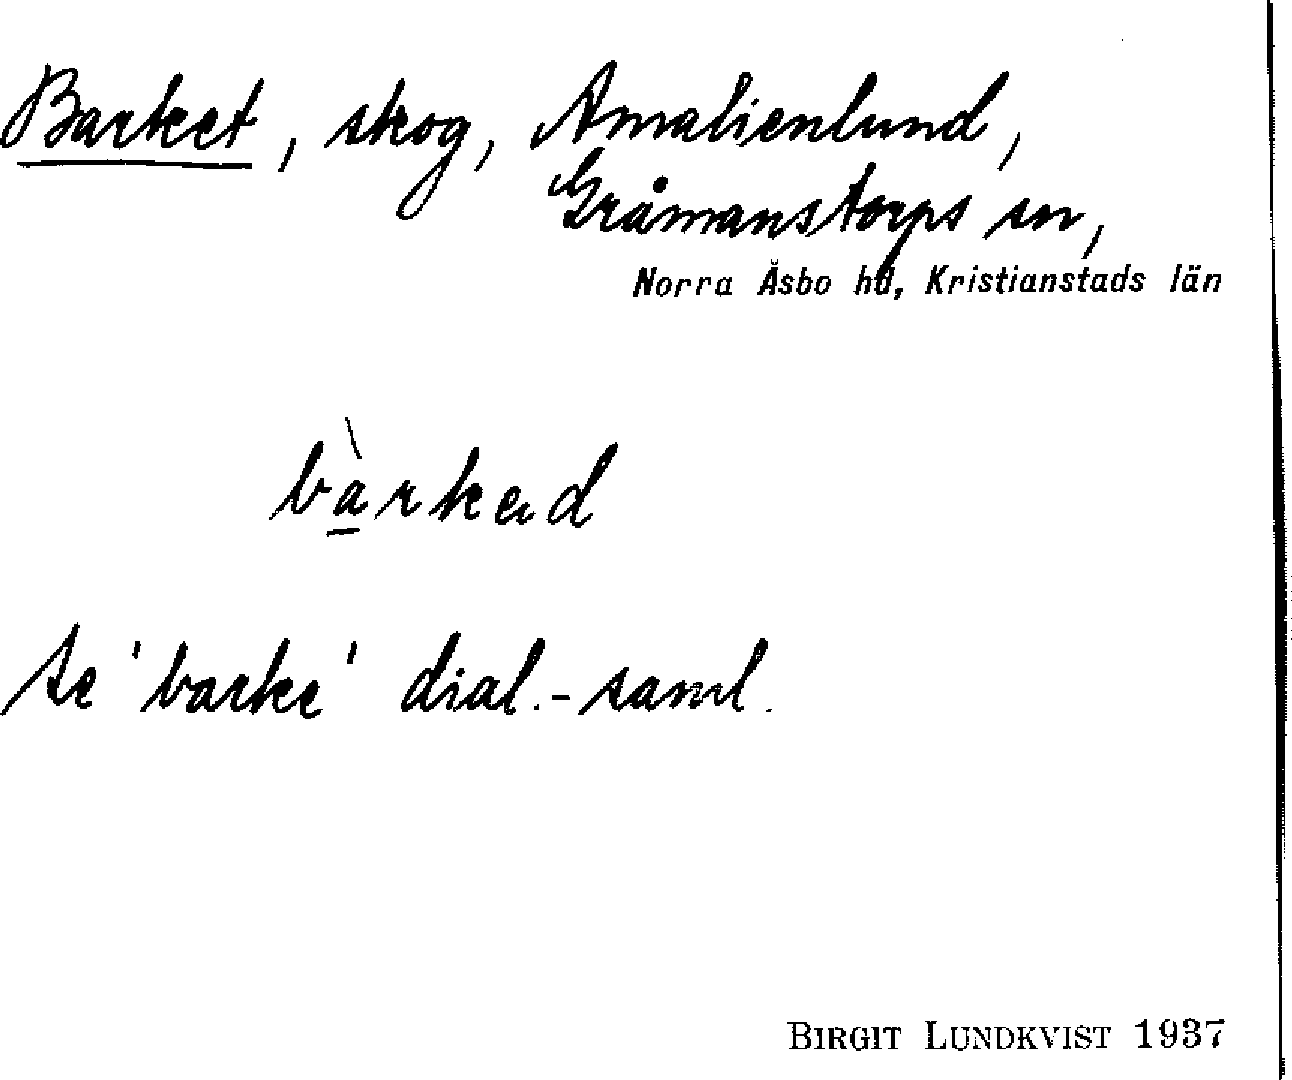 Barket, skog, Amalienlund,
Gråmanstorps sn,
Norra Åsbo hd, Kristianstads län
bàrkəd
se 'barke' dial.-saml.
BIRGIT LUNDKVIST 1937